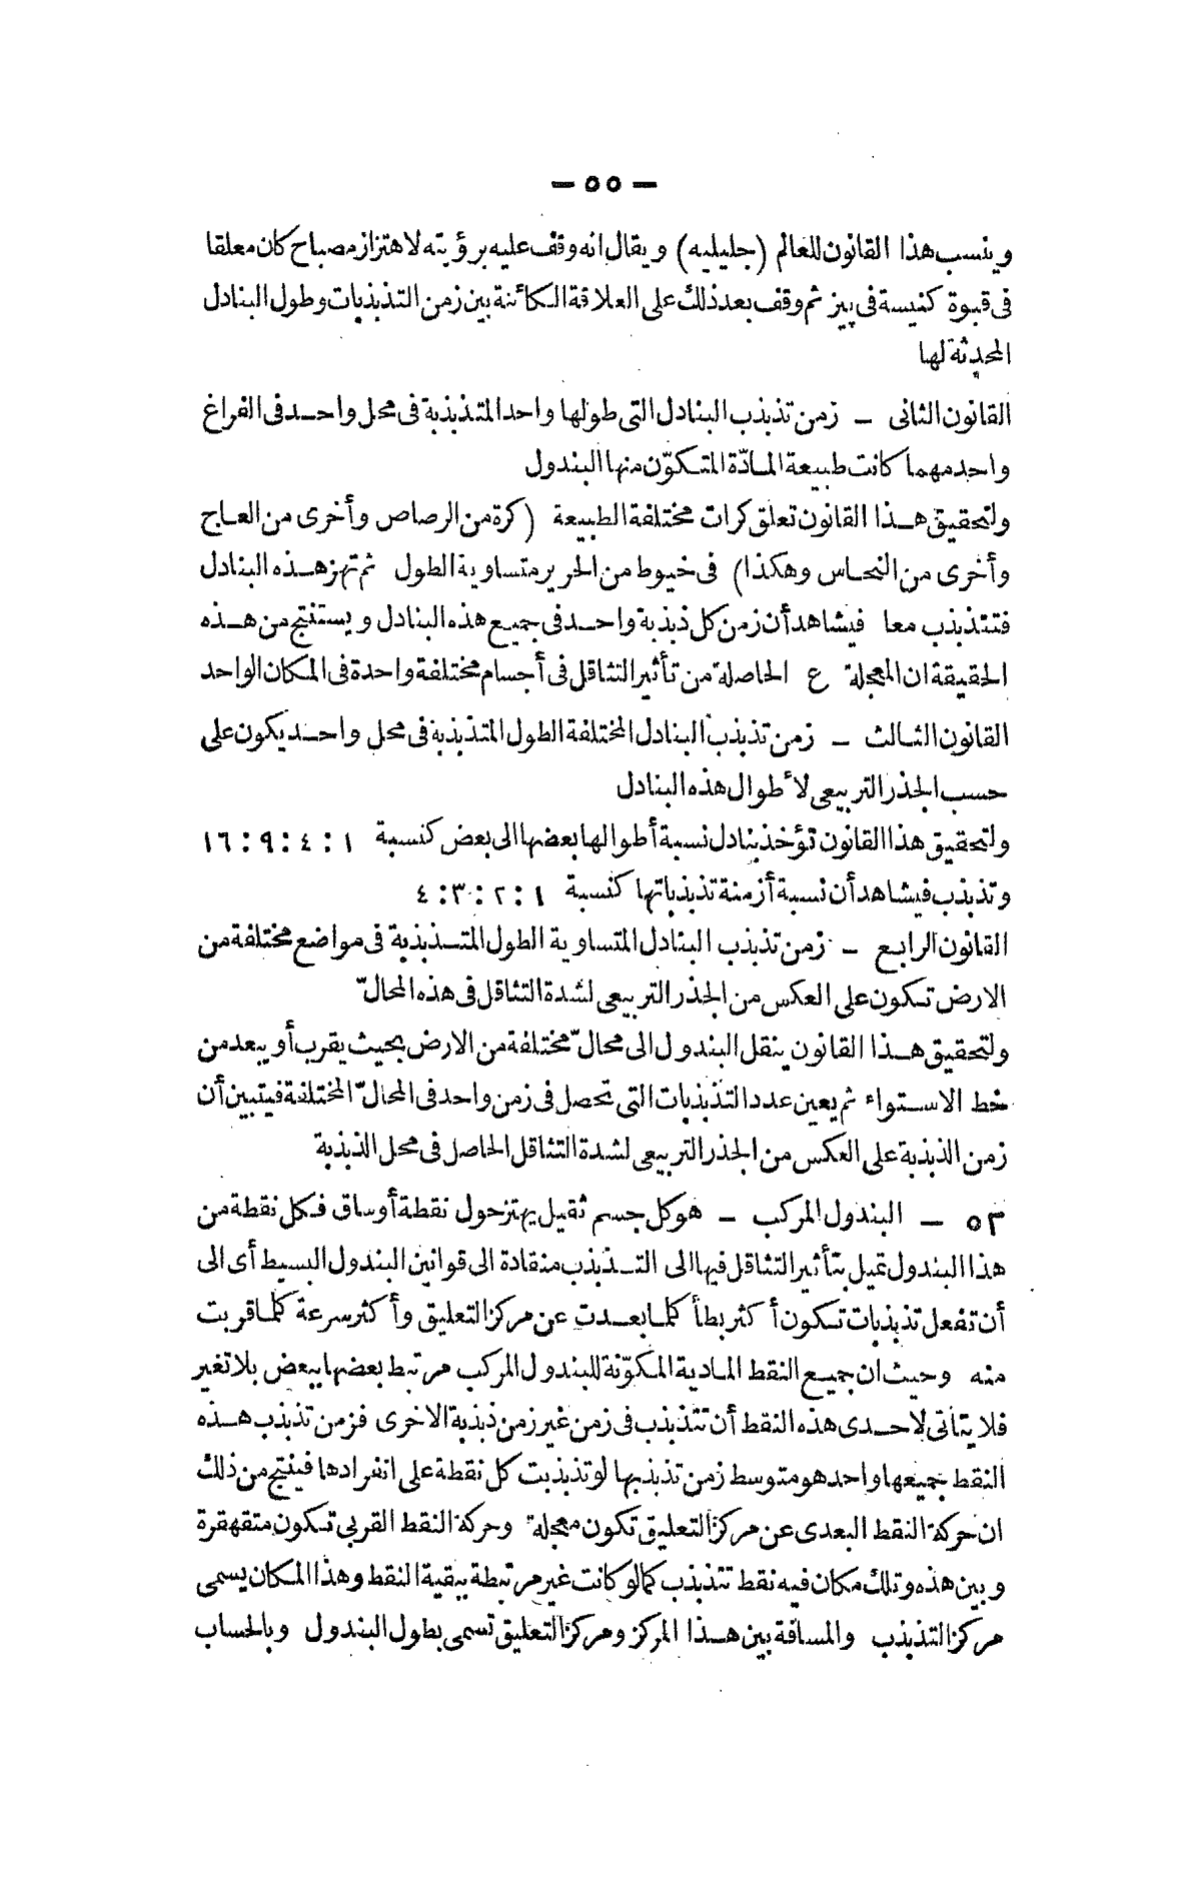 — ٥٥ —
وينسب هذا القانون للعالم (جليليه) ويقال انه وقف عليه برؤيته لاهتزاز مصباح كان معلقا
فى قبوة كنيسة فى بيز ثم وقف بعد ذلك على العلاقة الكائنة بين زمن التذبذبات وطول البنادل
المحدثة لها
القانون الثانى — زمن تذبذب البنادل التى طولها واحد المتذبذبة فى محل واحد فى الفراغ
واحد مهما كانت طبيعة المادّة المتكوّن منها البندول
ولتحقيق هذا القانون تعلق كرات مختلفة الطبيعة (كرة من الرصاص وأخرى من العاج
وأخرى من النحاس وهكذا) فى خيوط من الحرير متساوية الطول ثم تهز هذه البنادل
فتتذبذب معا فيشاهد أن زمن كل ذبذبة واحد فى جميع هذه البنادل ويستنتج من هذه
الحقيقة ان المعجلة ع الحاصلة من تأثير التثاقل فى أجسام مختلفة واحدة فى المكان الواحد
القانون الثالث — زمن تذبذب البنادل المختلفة الطول المتذبذبة فى محل واحد يكون على
حسب الجذر التربيعى لأطوال هذه البنادل
ولتحقيق هذا القانون تؤخذ بنادل نسبة أطوالها بعضها الى بعض كنسبة ١ : ٤ : ٩ : ١٦
وتذبذب فيشاهد أن نسبة أزمنة تذبذباتها كنسبة ١ : ٢ : ٣ : ٤
القانون الرابع — زمن تذبذب البنادل المتساوية الطول المتذبذبة فى مواضع مختلفة من
الارض تكون على العكس من الجذر التربيعى لشدة التثاقل فى هذه المحالّ
ولتحقيق هذا القانون ينقل البندول الى محالّ مختلفة من الارض بحيث يقرب أو يبعد من
خط الاستواء ثم يعين عدد التذبذبات التى تحصل فى زمن واحد فى المحالّ المختلفة فيتبين أن
زمن الذبذبة على العكس من الجذر التربيعى لشدة التثاقل الحاصل فى محل الذبذبة
٥٣ — البندول المركب — هو كل جسم ثقيل يهتز حول نقطة أو ساق فكل نقطة من
هذا البندول تميل بتأثير التثاقل فيها الى التذبذب منقادة الى قوانين البندول البسيط أى الى
أن تفعل تذبذبات تكون أكثر بطأ كلما بعدت عن مركز التعليق وأكثر سرعة كلما قربت
منه وحيث ان جميع النقط المادية المكوّنة للبندول المركب مرتبط بعضها ببعض بلا تغير
فلا يتأتى لاحدى هذه النقط أن تتذبذب فى زمن غير زمن ذبذبة الاخرى فزمن تذبذب هذه
النقط جميعها واحد هو متوسط زمن تذبذبها لو تذبذبت كل نقطة على انفرادها فينتج من ذلك
ان حركة النقط البعدى عن مركز التعليق تكون معجلة وحركة النقط القربى تكون متقهقرة
وبين هذه وتلك مكان فيه نقط تتذبذب كما لو كانت غير مرتبطة ببقية النقط وهذا المكان يسمى
مركز التذبذب والمسافة بين هذا المركز ومركز التعليق تسمى بطول البندول وبالحساب